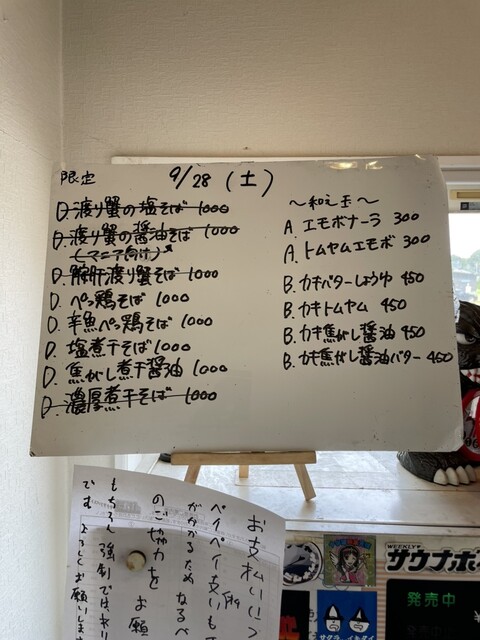 限定
9/28(土)
D.渡り蟹の塩そば 1000
D.渡り蟹の醤油そば 1000
(マニア向け)
D.鮟肝渡り蟹そば 1000
D.ペっ鶏そば 1000
D.辛魚ペっ鶏そば 1000
D.塩煮干そば 1000
D.焦がし煮干醤油 1000
D.濃厚煮干そば 1000
〜和え玉〜
A.エモボナーラ 300
A.トムヤムエモボ 300
B.カキバターしょうゆ 450
B.カキトムヤム 450
B.カキ焦がし醤油 450
B.カキ焦がし醤油バター 450
お支払いにつ
ペイペイ支払いも
がかかるためなるべ
のご協力をお願
もちろん強制ではあり
です よろしくお願いしま
WEEKLY
サウナボ
発売中
サウナ イキタイ